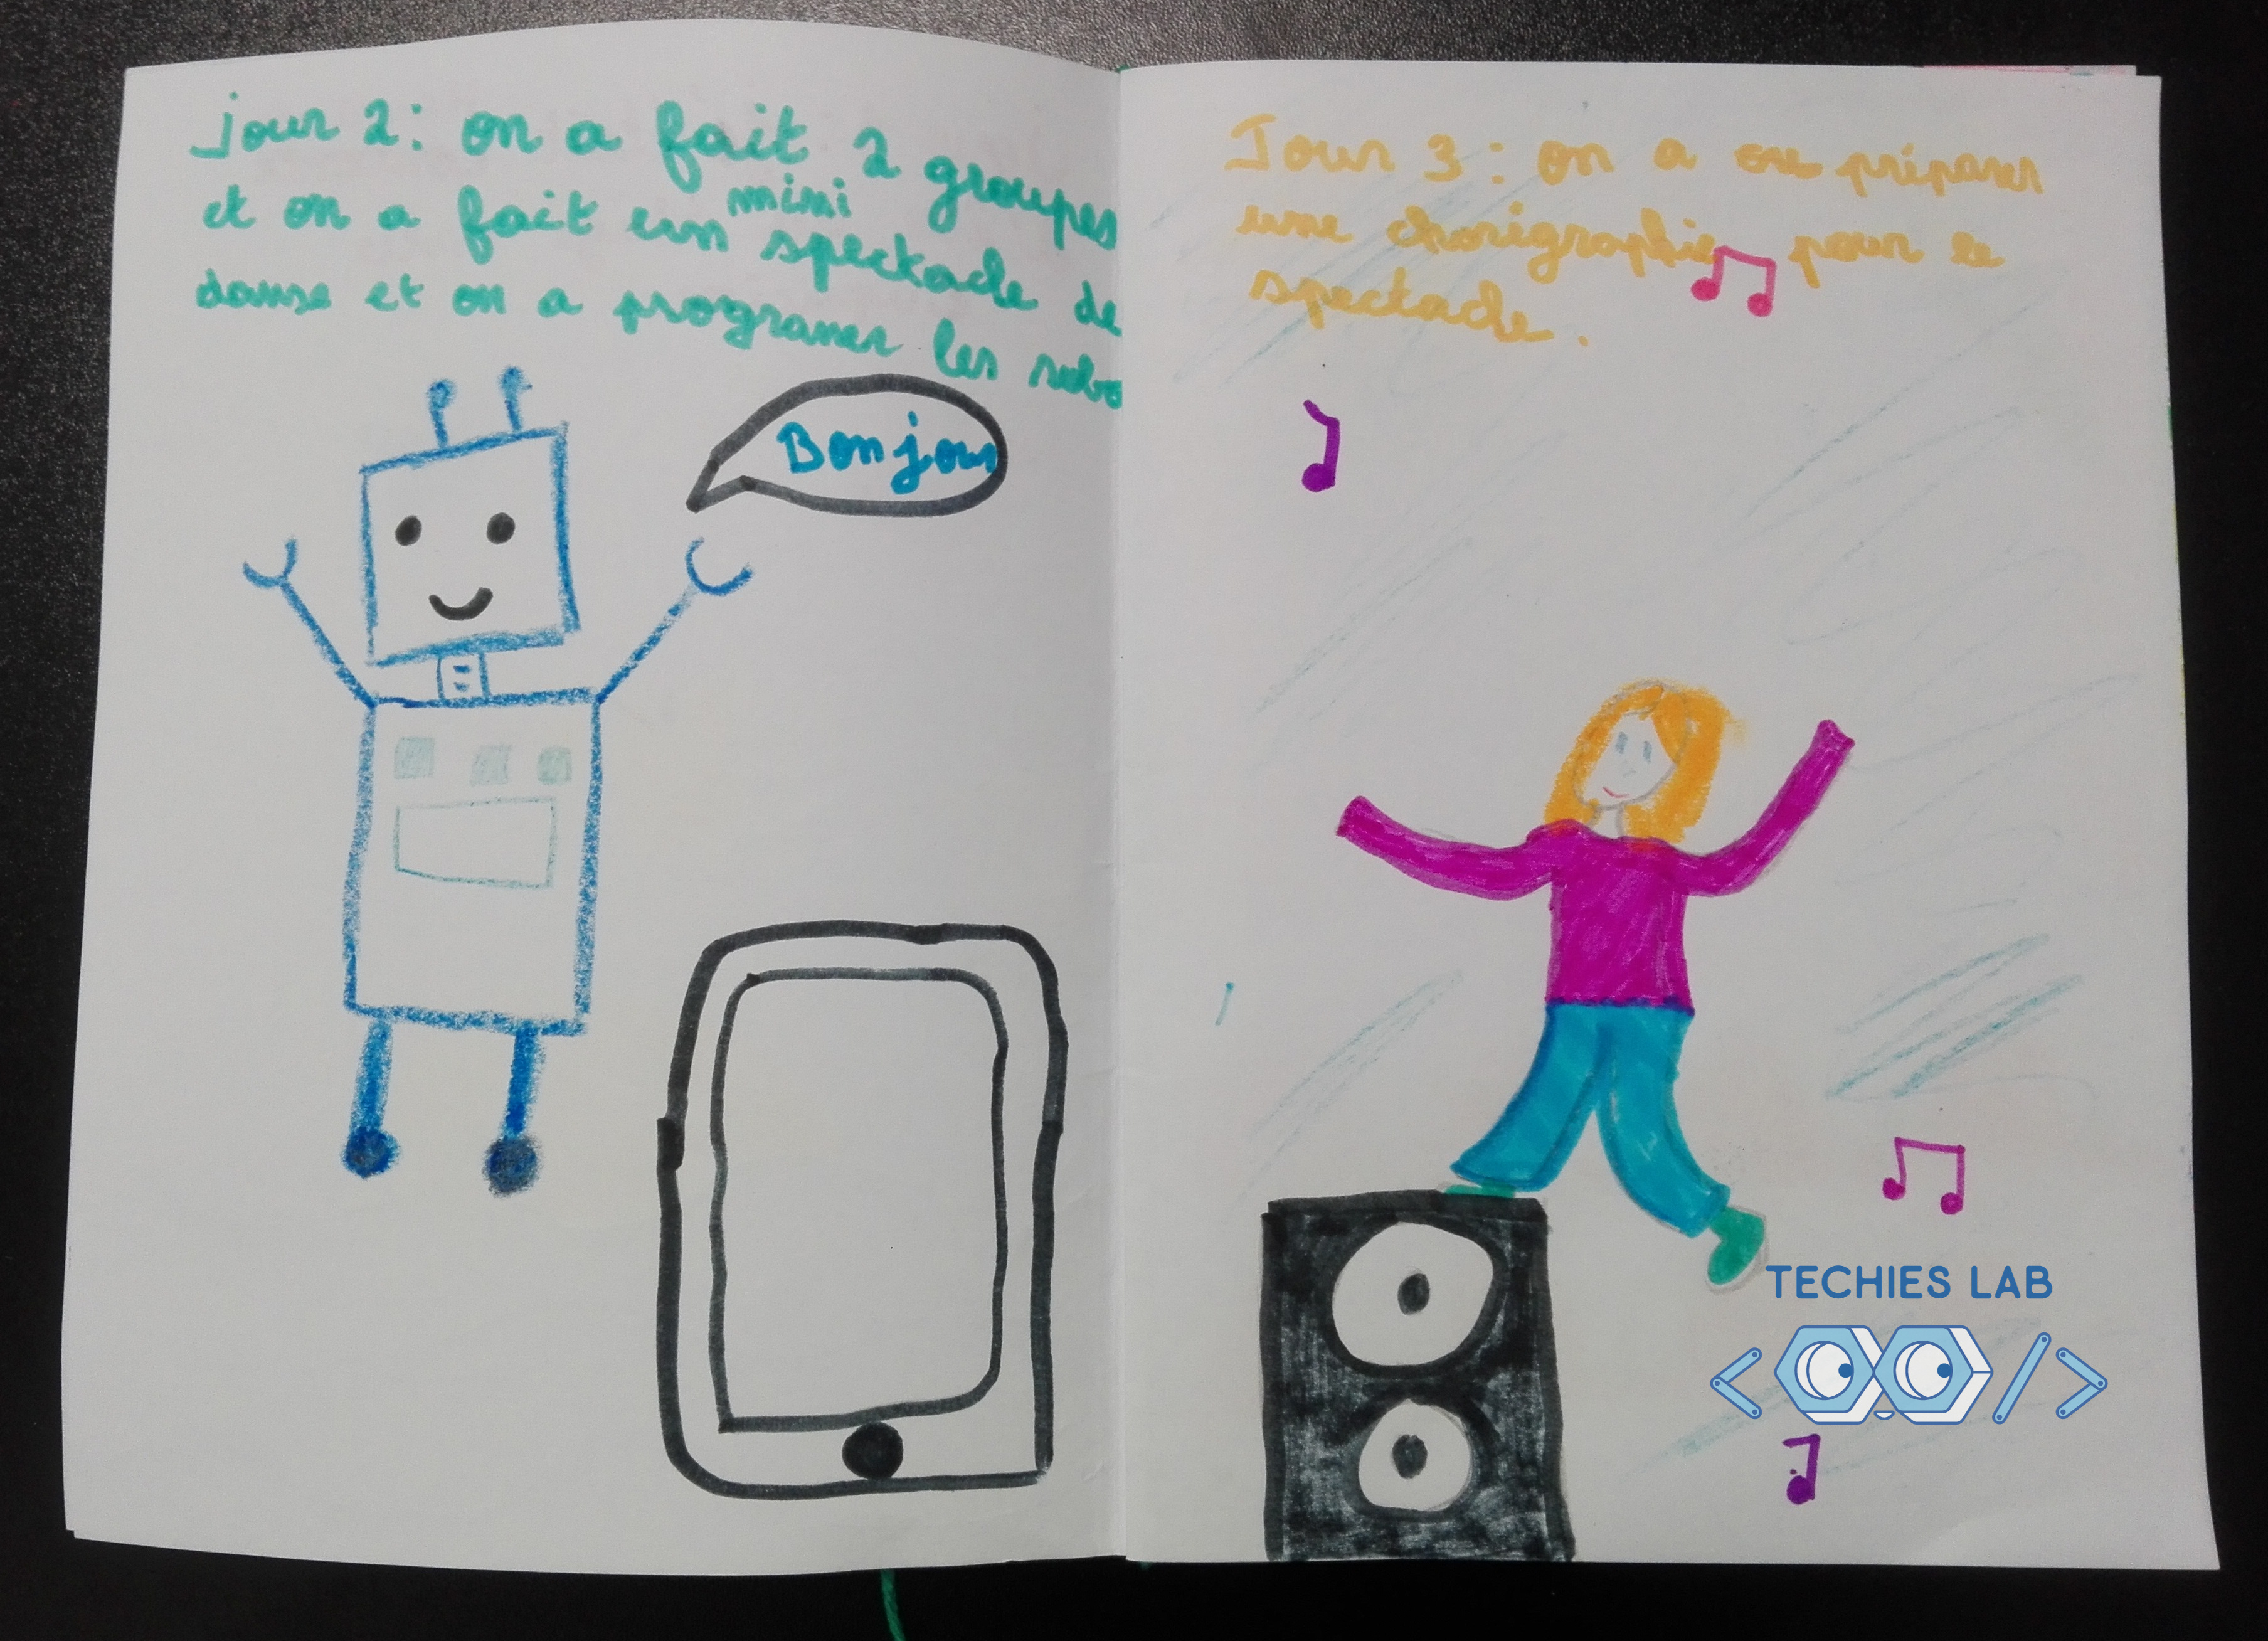 jour 2: on a fait 2 groupes
et on a fait un mini spectacle de
danse et on a programer les robo
Bonjour
Jour 3 : on a préparer
une chorigraphie pour le
spectacle.
TECHIES LAB